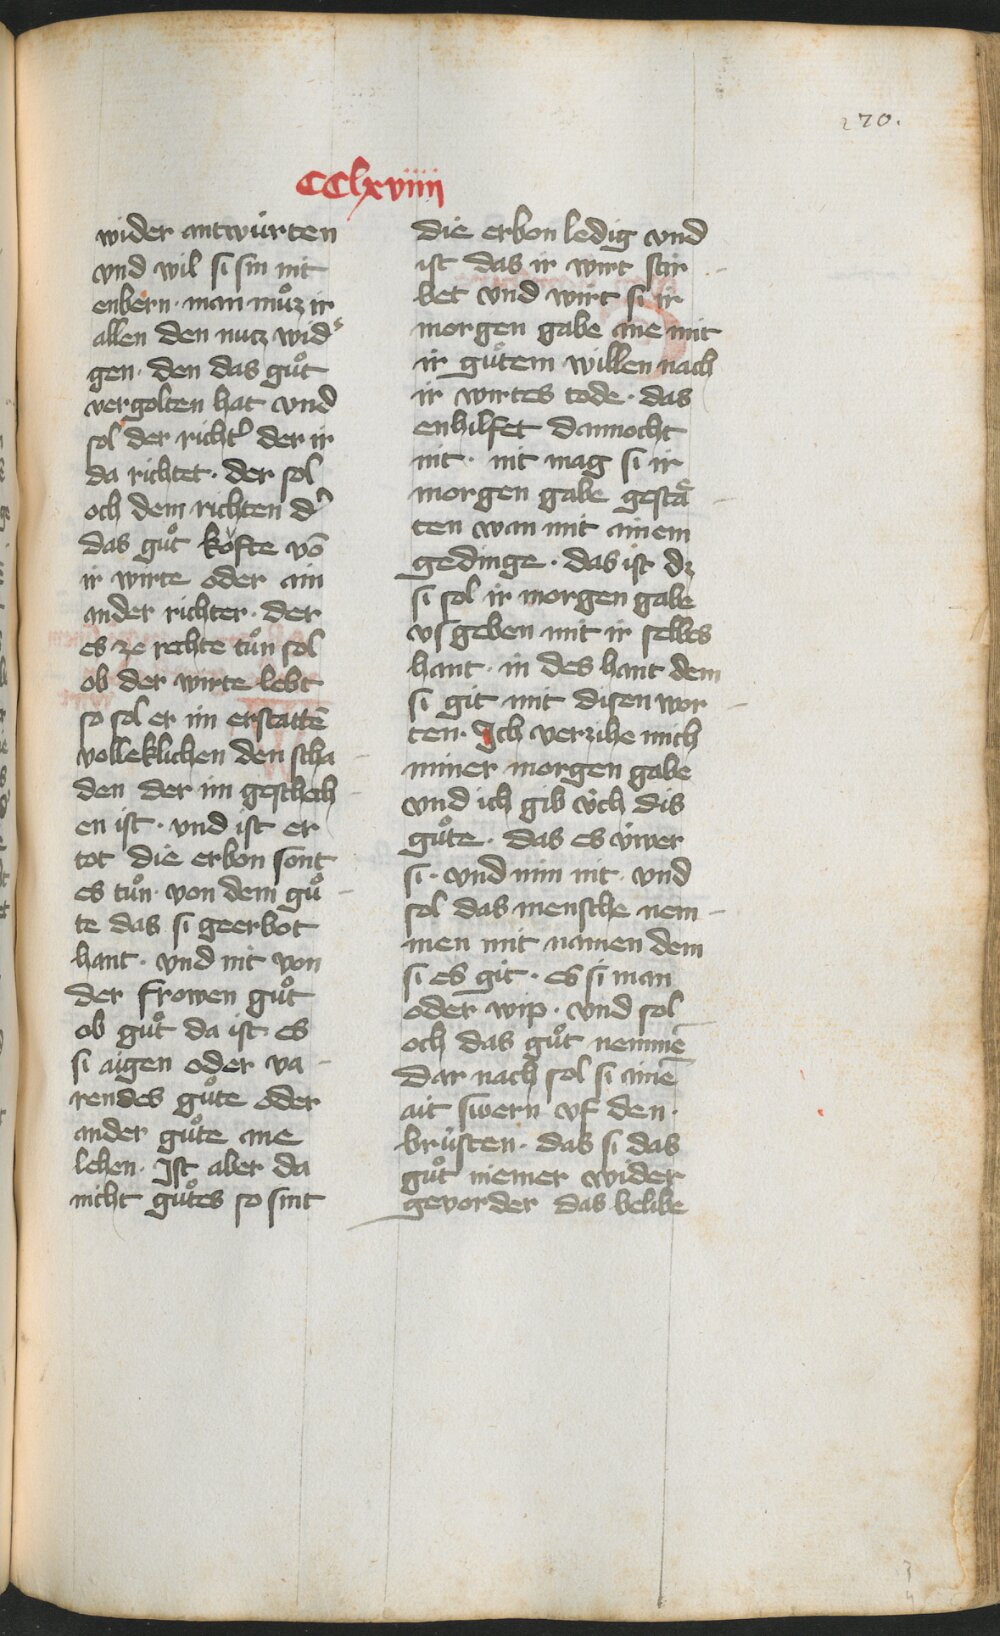 270.
CClxviiii
wider antwúrten
vnd wil si sin nit
enbern · man můz ir
allen den nutz wid͛
gen · den das gůt
vergolten hat vnd
sol der richt͛ der ir
da richtet · der sol
och dem richten d͛
das gůt kofte vō
ir wirte oder ain
ander richter · der
es ze rechte tůn sol
ob der wirte lebt
so sol er im erstattē
volleklichen den scha
den der im geschech
en ist · vnd ist er
tot die erbon sont
es tůn · von dem gů
te das si geerbot
hant · vnd nit von
der frowen gůt
ob gůt da ist · es
si aigen oder va
rendes gůte oder
ander gůte ane
lehen · Ist aber da
nicht gůtes so sint
die erbon ledig vnd
ist das ir wirt stir
bet vnd wirt si ir
morgen gabe ane mit
ir gůtem willen nach
ir wirtes tode · das
enhilfet dannocht
nit · nit mag si ir
morgen gabe gestå
ten wan mit ainem
gedinge · das ist dz
si sol ir morgen gabe
vf geben mit ir selbes
hant · in des hant dem
si git mit disen wor
ten · Ich verzihe mich
miner morgen gabe
vnd ich gib v́ch dis
gůte · das es v́wer
si · vnd min nit · vnd
sol das mensche nem
men mit namen dem
si es git · es si man
oder wip · vnd sol
och das gůt nemmē
dar nach sol si ainē
ait swern vf den ·
brústen · das si das
gůt niemer wider
gevorder das belibe